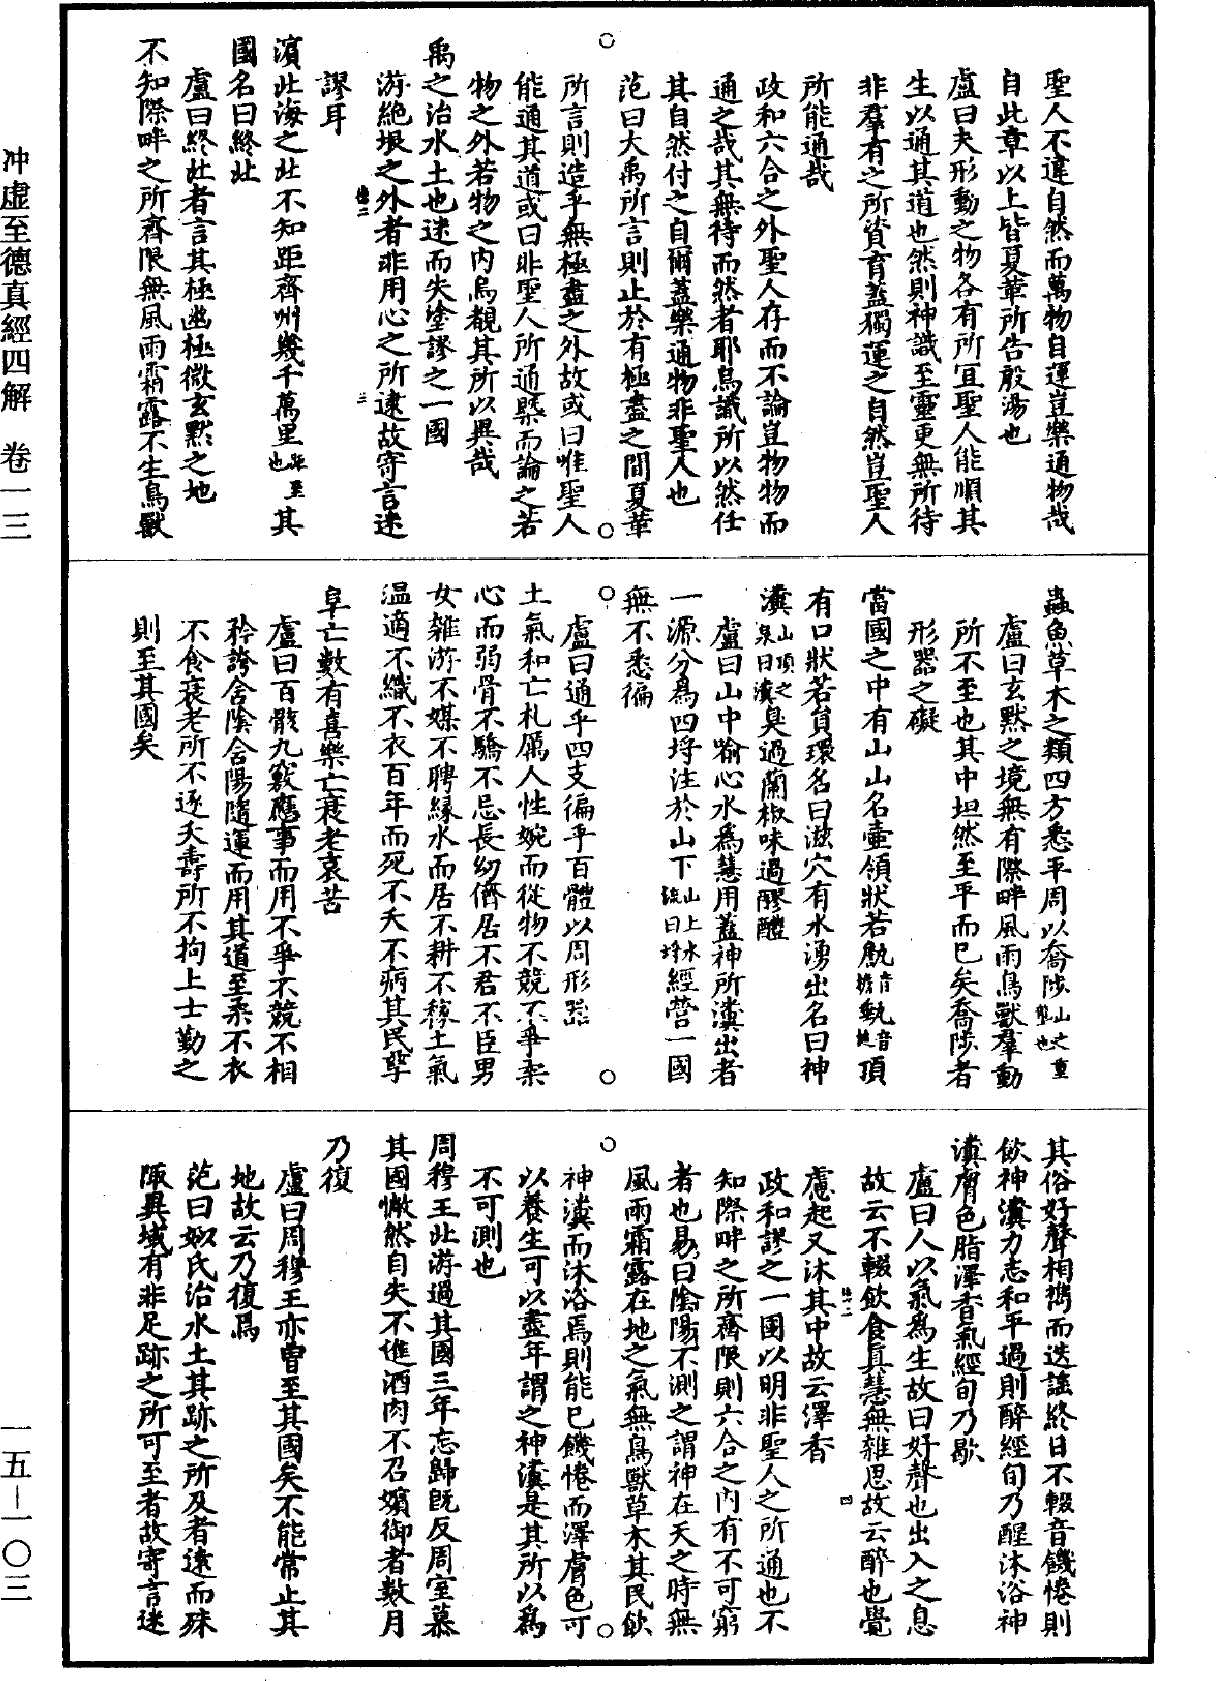 聖人不違自然而萬物自運豈樂通物哉
自此章以上皆夏革所告殷湯也
盧曰夫形動之物各有所宜聖人能順其
生以通其道也然則神識至靈更無所待
非羣有之所資育蓋獨運之自然豈聖人
所能通哉
政和六合之外聖人存而不論豈物物而
通之哉其無待而然者耶烏識所以然任
其自然付之自爾蓋樂通物非聖人也
范曰大禹所言則止於有極盡之間夏革
所言則造乎無極盡之外故或曰唯聖人
能通其道或曰非聖人所通槩而論之若
物之外若物之内烏覩其所以異哉
禹之治水土也迷而失塗謬之一國
游絶垠之外者非用心之所逮故寄言迷
謬耳
濱北海之北不知距齊州幾千萬里
距至也
其
國名曰終北
盧曰終北者言其極幽極微玄默之地
不知際畔之所齊限無風雨霜露不生鳥獸
蟲魚草木之類四方悉平周以喬陟
山之重壟也
盧曰玄默之境無有際畔風雨鳥獸羣動
所不至也其中坦然至平而已矣喬陟者
形器之礙
當國之中有山山名壺領狀若甔
甀
頂
有口狀若員環名曰滋穴有水湧出名曰神
瀵
山頂之泉曰瀵
臭過蘭椒味過醪醴
盧曰山中喻心水爲慧用蓋神所瀵出者
一源分爲四埒注於山下
山上水流曰埒
經營一國
無不悉徧
盧曰通乎四支徧乎百體以周形器
土氣和亡札厲人性婉而從物不競不爭柔
心而弱骨不驕不忌長幼儕居不君不臣男
女雜游不媒不聘緣水而居不耕不稼土氣
温適不織不衣百年而死不夭不病其民孳
阜亡數有喜樂亡衰老哀苦
盧曰百骸九竅應事而用不爭不競不相
矜誇舍陰含陽隨運而用其道至柔不衣
不食衰老所不逐夭壽所不拘上士勤之
則至其國矣
其俗好聲相攜而迭謠終日不輟音饑惓則
飲神瀵力志和平過則醉經旬乃醒沐浴神
瀵膚色脂澤香氣經旬乃歇
盧曰人以氣爲生故曰好聲也出入之息
故云不輟飲食眞慧無雜思故云醉也覺
慮起又沐其中故云澤香
政和謬之一國以明非聖人之所通也不
知際畔之所齊限則六合之内有不可窮
者也易曰陰陽不測之謂神在天之時無
風雨霜露在地之氣無鳥獸草木其民飲
神瀵而沐浴焉則能已饑惓而澤膚色可
以養生可以盡年謂之神瀵是其所以爲
不可測也
周穆王北游過其國三年忘歸旣反周室慕
其國惝然自失不進酒肉不召嬪御者數月
乃復
盧曰周穆王亦曾至其國矣不能常止其
地故云乃復焉
范曰姒氏治水土其跡之所及者遠而殊
陬異域有非足跡之所可至者故寄言迷
冲虚至德真經四解　卷一三
一五—一〇三